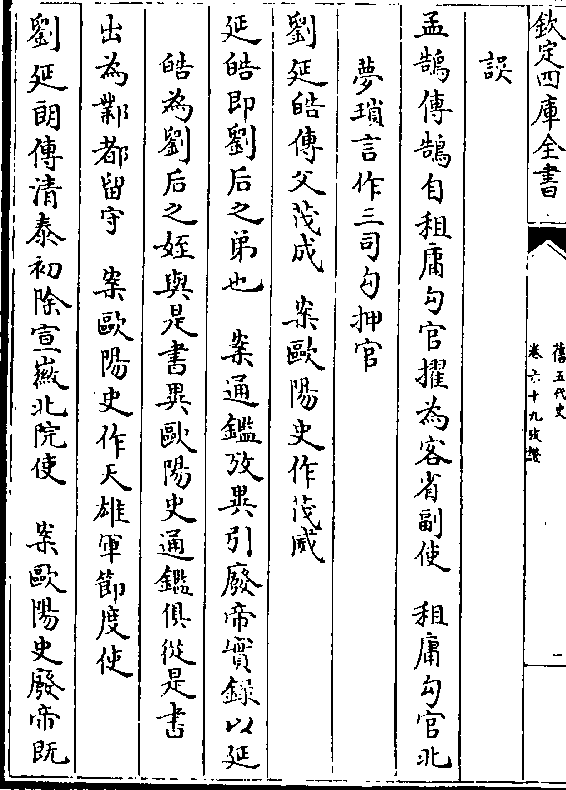 欽定四庫全書
舊五代史
卷六十九攷證
一
誤
孟鵠傳鵠自租庸勾官擢為客省副使 租庸勾官北
夢瑣言作三司勾押官
劉延皓傳父茂成 案歐陽史作茂威
延皓即劉后之弟也 案通鑑攷異引廢帝實録以延
皓為劉后之姪與是書異歐陽史通鑑俱從是書
出為鄴都留守 案歐陽史作天雄軍節度使
劉延朗傳清泰初除宣徽北院使 案歐陽史廢帝既